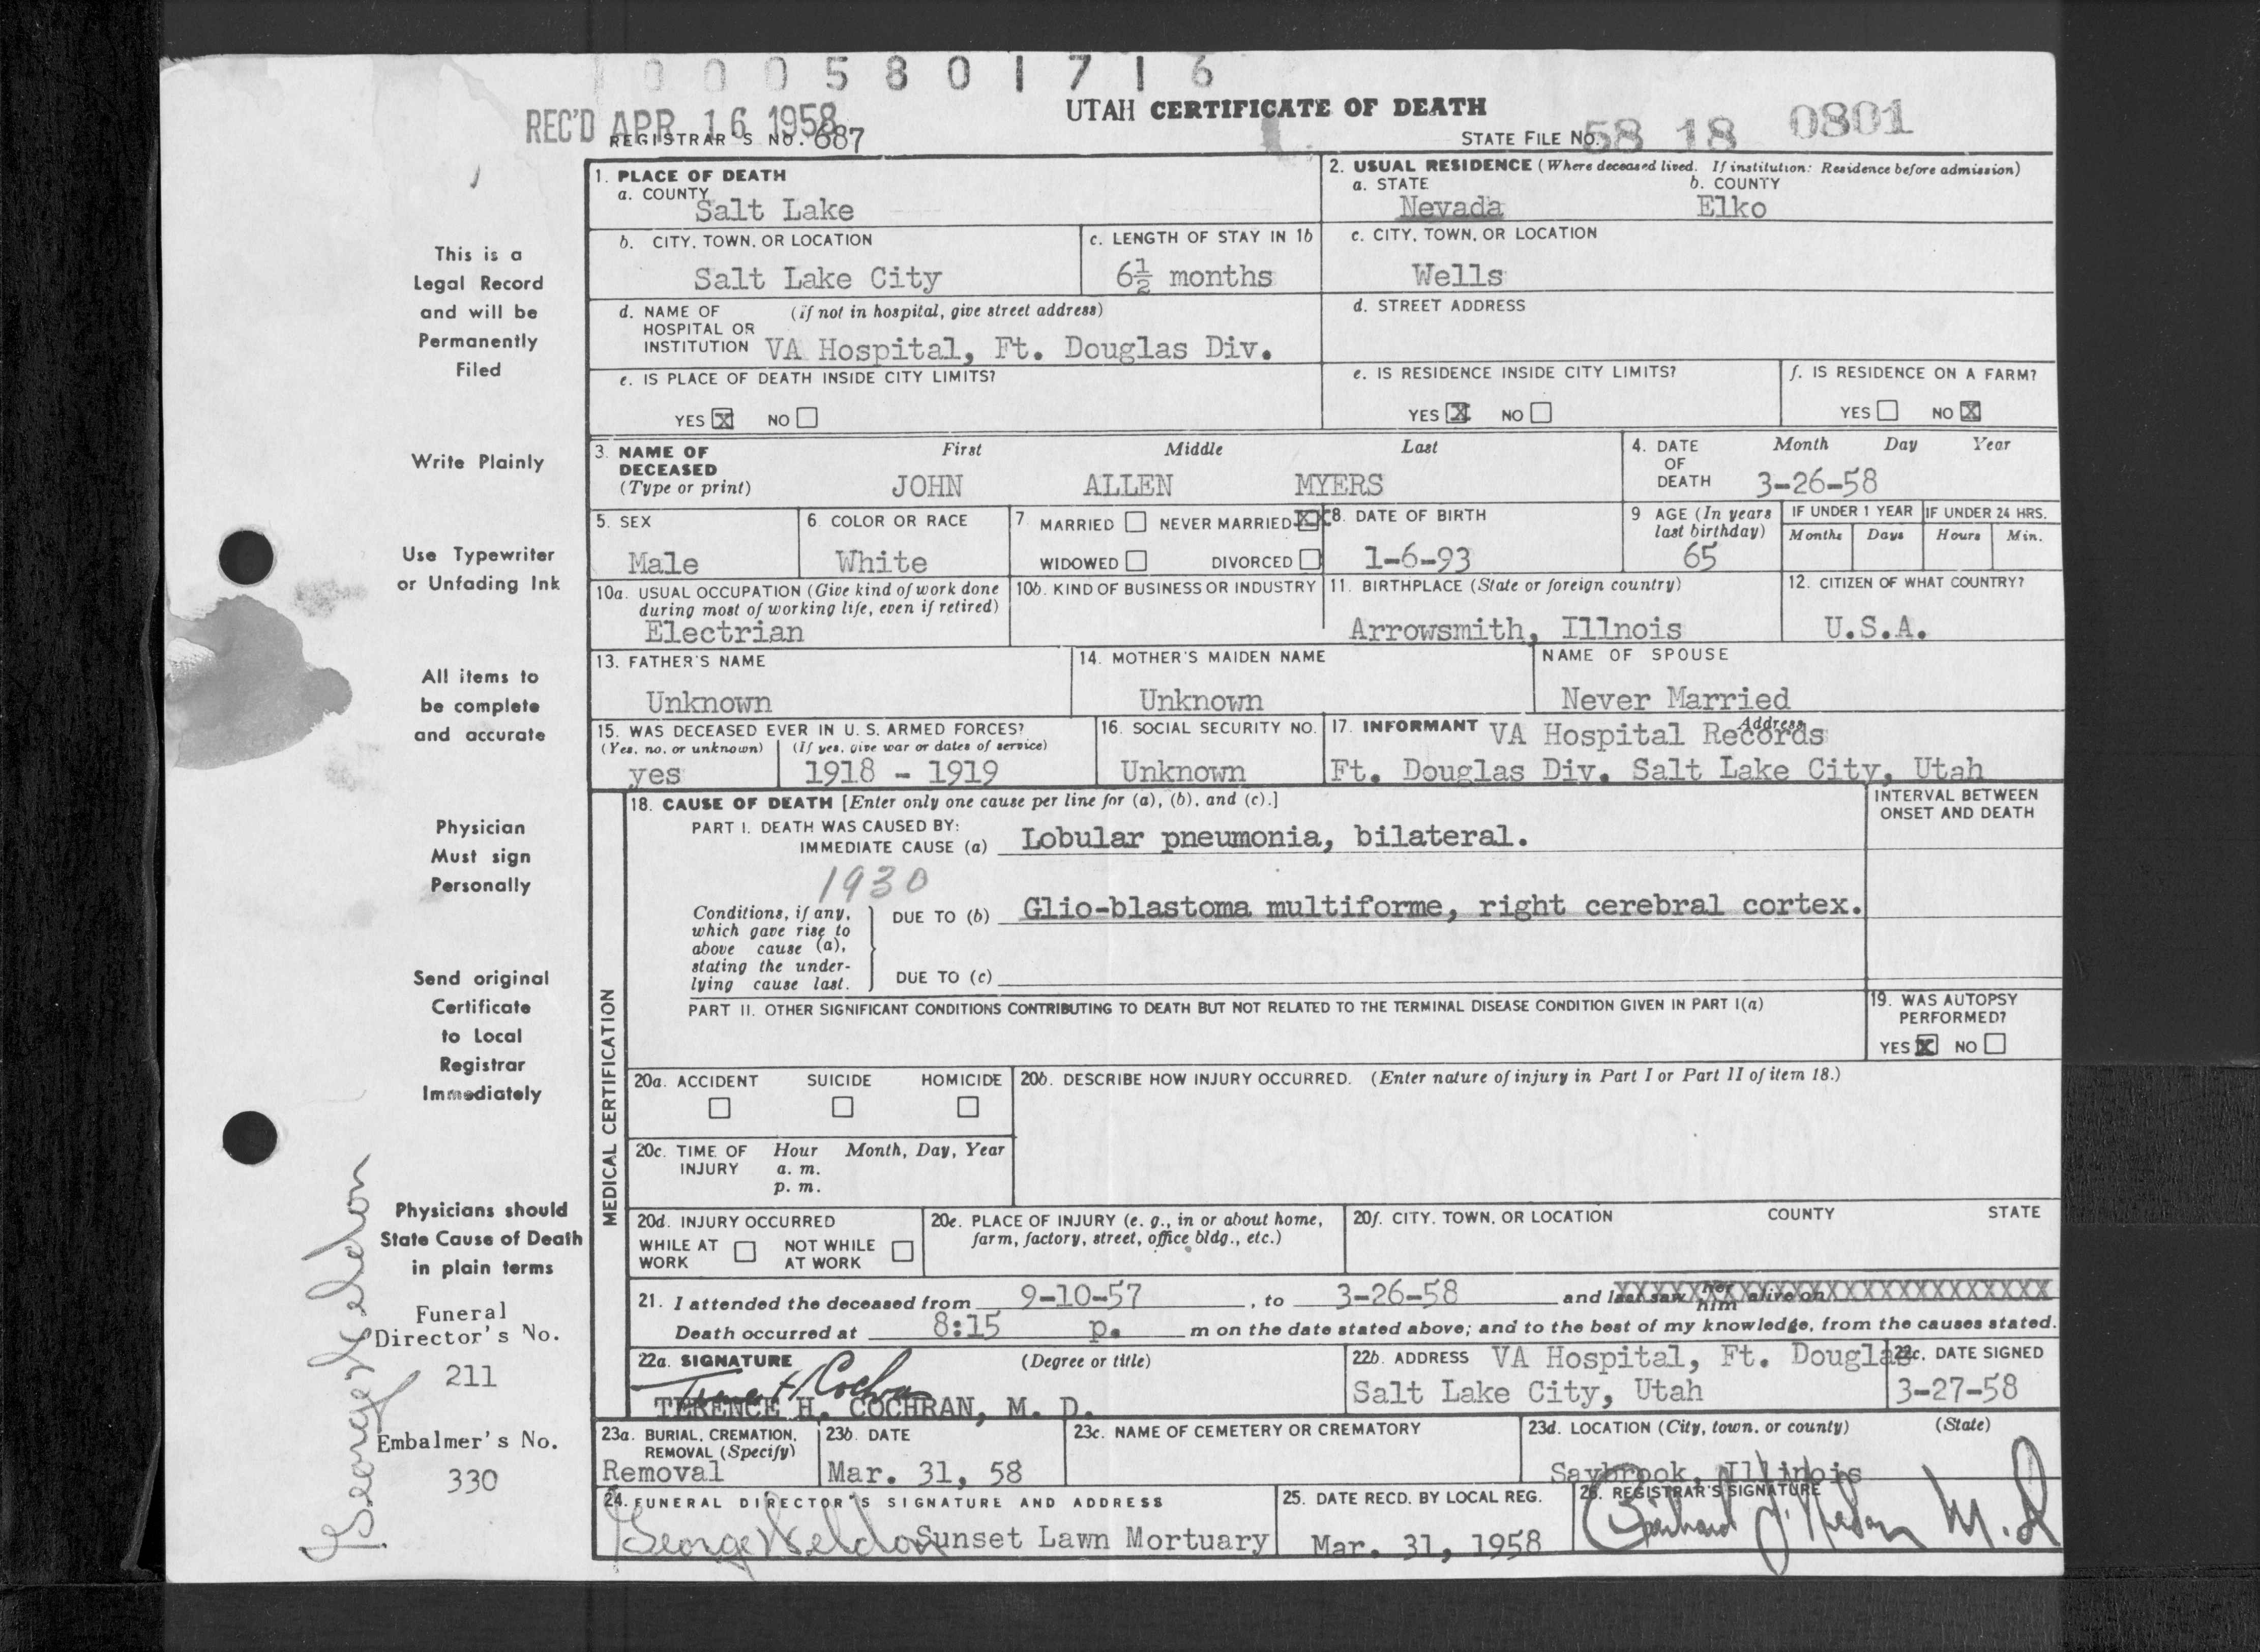 0 0 0 5 8 0 1 7 1 6
UTAH CERTIFICATE OF DEATH
REC'D APR 16 1958
REGISTRAR'S NO. 687
STATE FILE NO. 58 18 0801
1. PLACE OF DEATH
a. COUNTY
Salt Lake
2. USUAL RESIDENCE (Where deceased lived. If institution: Residence before admission)
a. STATE b. COUNTY
Nevada Elko
b. CITY, TOWN, OR LOCATION
Salt Lake City
c. LENGTH OF STAY IN 1b
6½ months
c. CITY, TOWN, OR LOCATION
Wells
d. NAME OF HOSPITAL OR INSTITUTION (if not in hospital, give street address)
VA Hospital, Ft. Douglas Div.
d. STREET ADDRESS
e. IS PLACE OF DEATH INSIDE CITY LIMITS?
YES X NO
e. IS RESIDENCE INSIDE CITY LIMITS?
YES X NO
f. IS RESIDENCE ON A FARM?
YES NO X
3. NAME OF DECEASED (Type or print)
First Middle Last
JOHN ALLEN MYERS
4. DATE OF DEATH Month Day Year
3-26-58
5. SEX
Male
6. COLOR OR RACE
White
7. MARRIED NEVER MARRIED X
WIDOWED DIVORCED
8. DATE OF BIRTH
1-6-93
9 AGE (In years last birthday)
65
IF UNDER 1 YEAR IF UNDER 24 HRS.
Months Days Hours Min.
10a. USUAL OCCUPATION (Give kind of work done during most of working life, even if retired)
Electrian
10b. KIND OF BUSINESS OR INDUSTRY
11. BIRTHPLACE (State or foreign country)
Arrowsmith, Illnois
12. CITIZEN OF WHAT COUNTRY?
U.S.A.
13. FATHER'S NAME
Unknown
14. MOTHER'S MAIDEN NAME
Unknown
NAME OF SPOUSE
Never Married
15. WAS DECEASED EVER IN U. S. ARMED FORCES?
(Yes, no, or unknown) (If yes, give war or dates of service)
yes 1918 - 1919
16. SOCIAL SECURITY NO.
Unknown
17. INFORMANT Address
VA Hospital Records
Ft. Douglas Div. Salt Lake City, Utah
MEDICAL CERTIFICATION
18. CAUSE OF DEATH [Enter only one cause per line for (a), (b), and (c).]
INTERVAL BETWEEN ONSET AND DEATH
PART I. DEATH WAS CAUSED BY:
IMMEDIATE CAUSE (a) Lobular pneumonia, bilateral.
1930
Conditions, if any, which gave rise to above cause (a), stating the underlying cause last.
DUE TO (b) Glio-blastoma multiforme, right cerebral cortex.
DUE TO (c)
PART II. OTHER SIGNIFICANT CONDITIONS CONTRIBUTING TO DEATH BUT NOT RELATED TO THE TERMINAL DISEASE CONDITION GIVEN IN PART I(a)
19. WAS AUTOPSY PERFORMED?
YES X NO
20a. ACCIDENT SUICIDE HOMICIDE
20b. DESCRIBE HOW INJURY OCCURRED. (Enter nature of injury in Part I or Part II of item 18.)
20c. TIME OF INJURY Hour Month, Day, Year
a. m.
p. m.
20d. INJURY OCCURRED
WHILE AT WORK NOT WHILE AT WORK
20e. PLACE OF INJURY (e. g., in or about home, farm, factory, street, office bldg., etc.)
20f. CITY, TOWN, OR LOCATION COUNTY STATE
21. I attended the deceased from 9-10-57, to 3-26-58 and last saw her him alive on XXXXXXXXXX
Death occurred at 8:15 p. m on the date stated above; and to the best of my knowledge, from the causes stated.
22a. SIGNATURE (Degree or title)
TERENCE H. COCHRAN, M. D.
22b. ADDRESS VA Hospital, Ft. Douglas
Salt Lake City, Utah
22c. DATE SIGNED
3-27-58
23a. BURIAL, CREMATION, REMOVAL (Specify)
Removal
23b. DATE
Mar. 31, 58
23c. NAME OF CEMETERY OR CREMATORY
23d. LOCATION (City, town, or county) (State)
Saybrook, Illinois
24. FUNERAL DIRECTOR'S SIGNATURE AND ADDRESS
Sunset Lawn Mortuary
25. DATE RECD. BY LOCAL REG.
Mar. 31, 1958
26. REGISTRAR'S SIGNATURE
M.D.
This is a
Legal Record
and will be
Permanently
Filed
Write Plainly
Use Typewriter
or Unfading Ink
All items to
be complete
and accurate
Physician
Must sign
Personally
Send original
Certificate
to Local
Registrar
Immediately
Physicians should
State Cause of Death
in plain terms
Funeral
Director's No.
211
Embalmer's No.
330